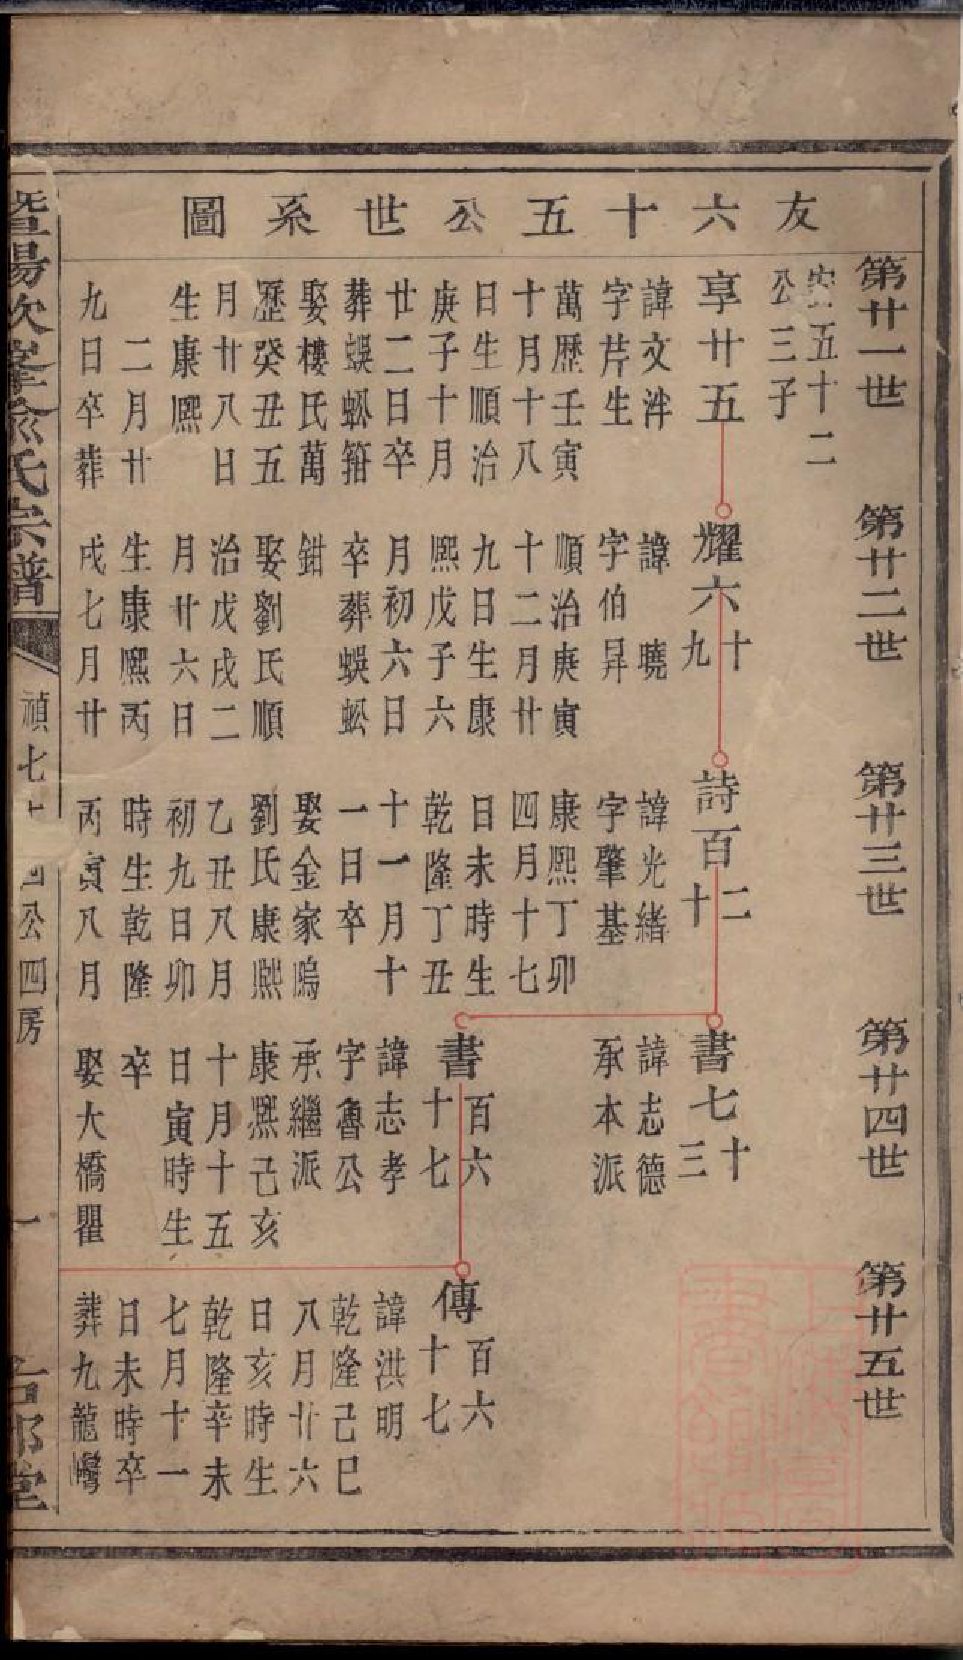 友六十五公世系圖
第廿一世
第廿二世
第廿三世
第廿四世
第廿五世
宏五十二
公三子
享廿五
諱文泮
字芹生
萬歷壬寅
十月十八
日生順治
庚子十月
廿二日卒
葬蜈蚣箝
娶樓氏萬
歷癸丑五
月廿八日
生康熙
二月廿
九日卒葬
耀六十九
諱曉
字伯昇
順治庚寅
十二月廿
九日生康
熙戊子六
月初六日
卒葬蜈蚣
鉗
娶劉氏順
治戊戌二
月廿六日
生康熙丙
戌七月廿
詩百二十
諱光緒
字肇基
康熙丁卯
四月十七
日未時生
乾隆丁丑
十一月十
一日卒
娶金家塢
劉氏康熙
乙丑八月
初九日卯
時生乾隆
丙寅八月
書七十三
諱志德
承本派
書百六十七
諱志孝
字魯公
承繼派
康熙己亥
十月十五
日寅時生
卒
娶大橋瞿
傳百六十七
諱洪明
乾隆己巳
八月廿六
日亥時生
乾隆辛未
七月十一
日未時卒
葬九龍灣
暨陽次峯俞氏宗譜
禎七十四公四房
一
堂